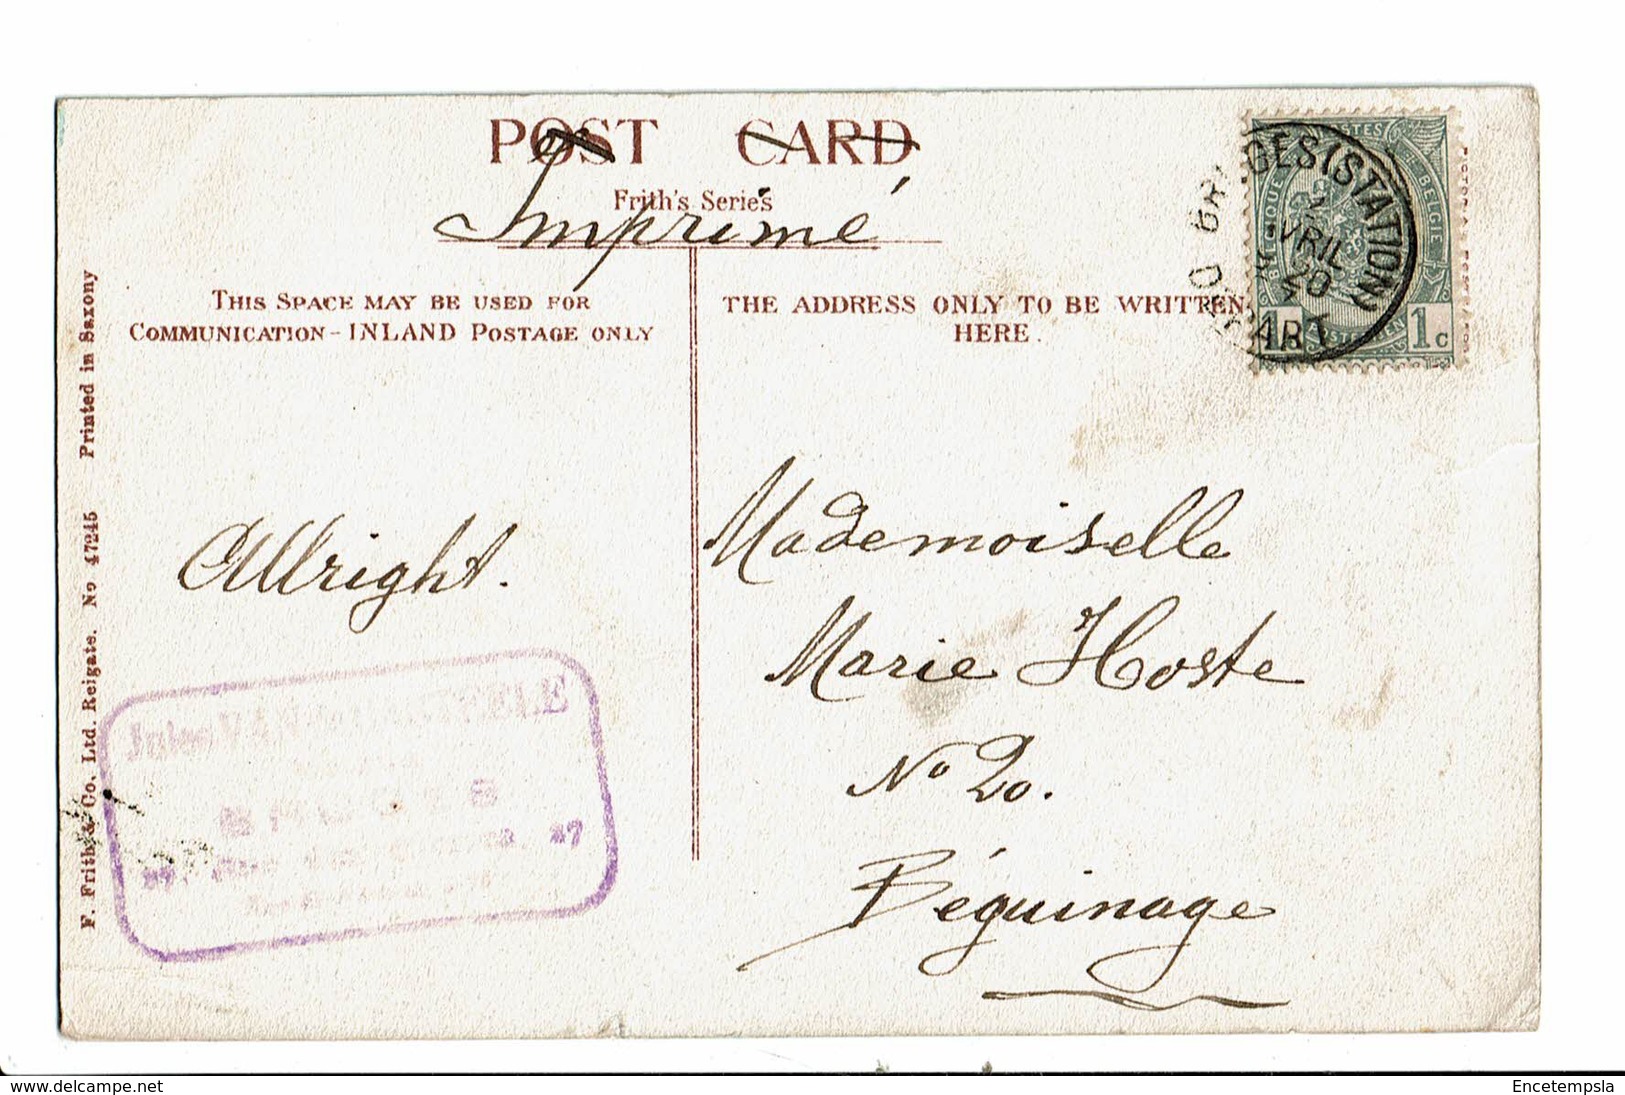 POST CARD
Frith's Series
Imprimé
THIS SPACE MAY BE USED FOR
COMMUNICATION - INLAND POSTAGE ONLY
THE ADDRESS ONLY TO BE WRITTEN
HERE.
BRUGES (STATION)
AVRIL
20
DÉPART
BELGIQUE
POSTES
BELGIE
1c
F. Frith & Co. Ltd. Reigate. No 47245 Printed in Saxony
Allright.
Mademoiselle
Marie Hoste
No 20.
Béguinage
Jules VAN
27
www.delcampe.net
Encetempsla